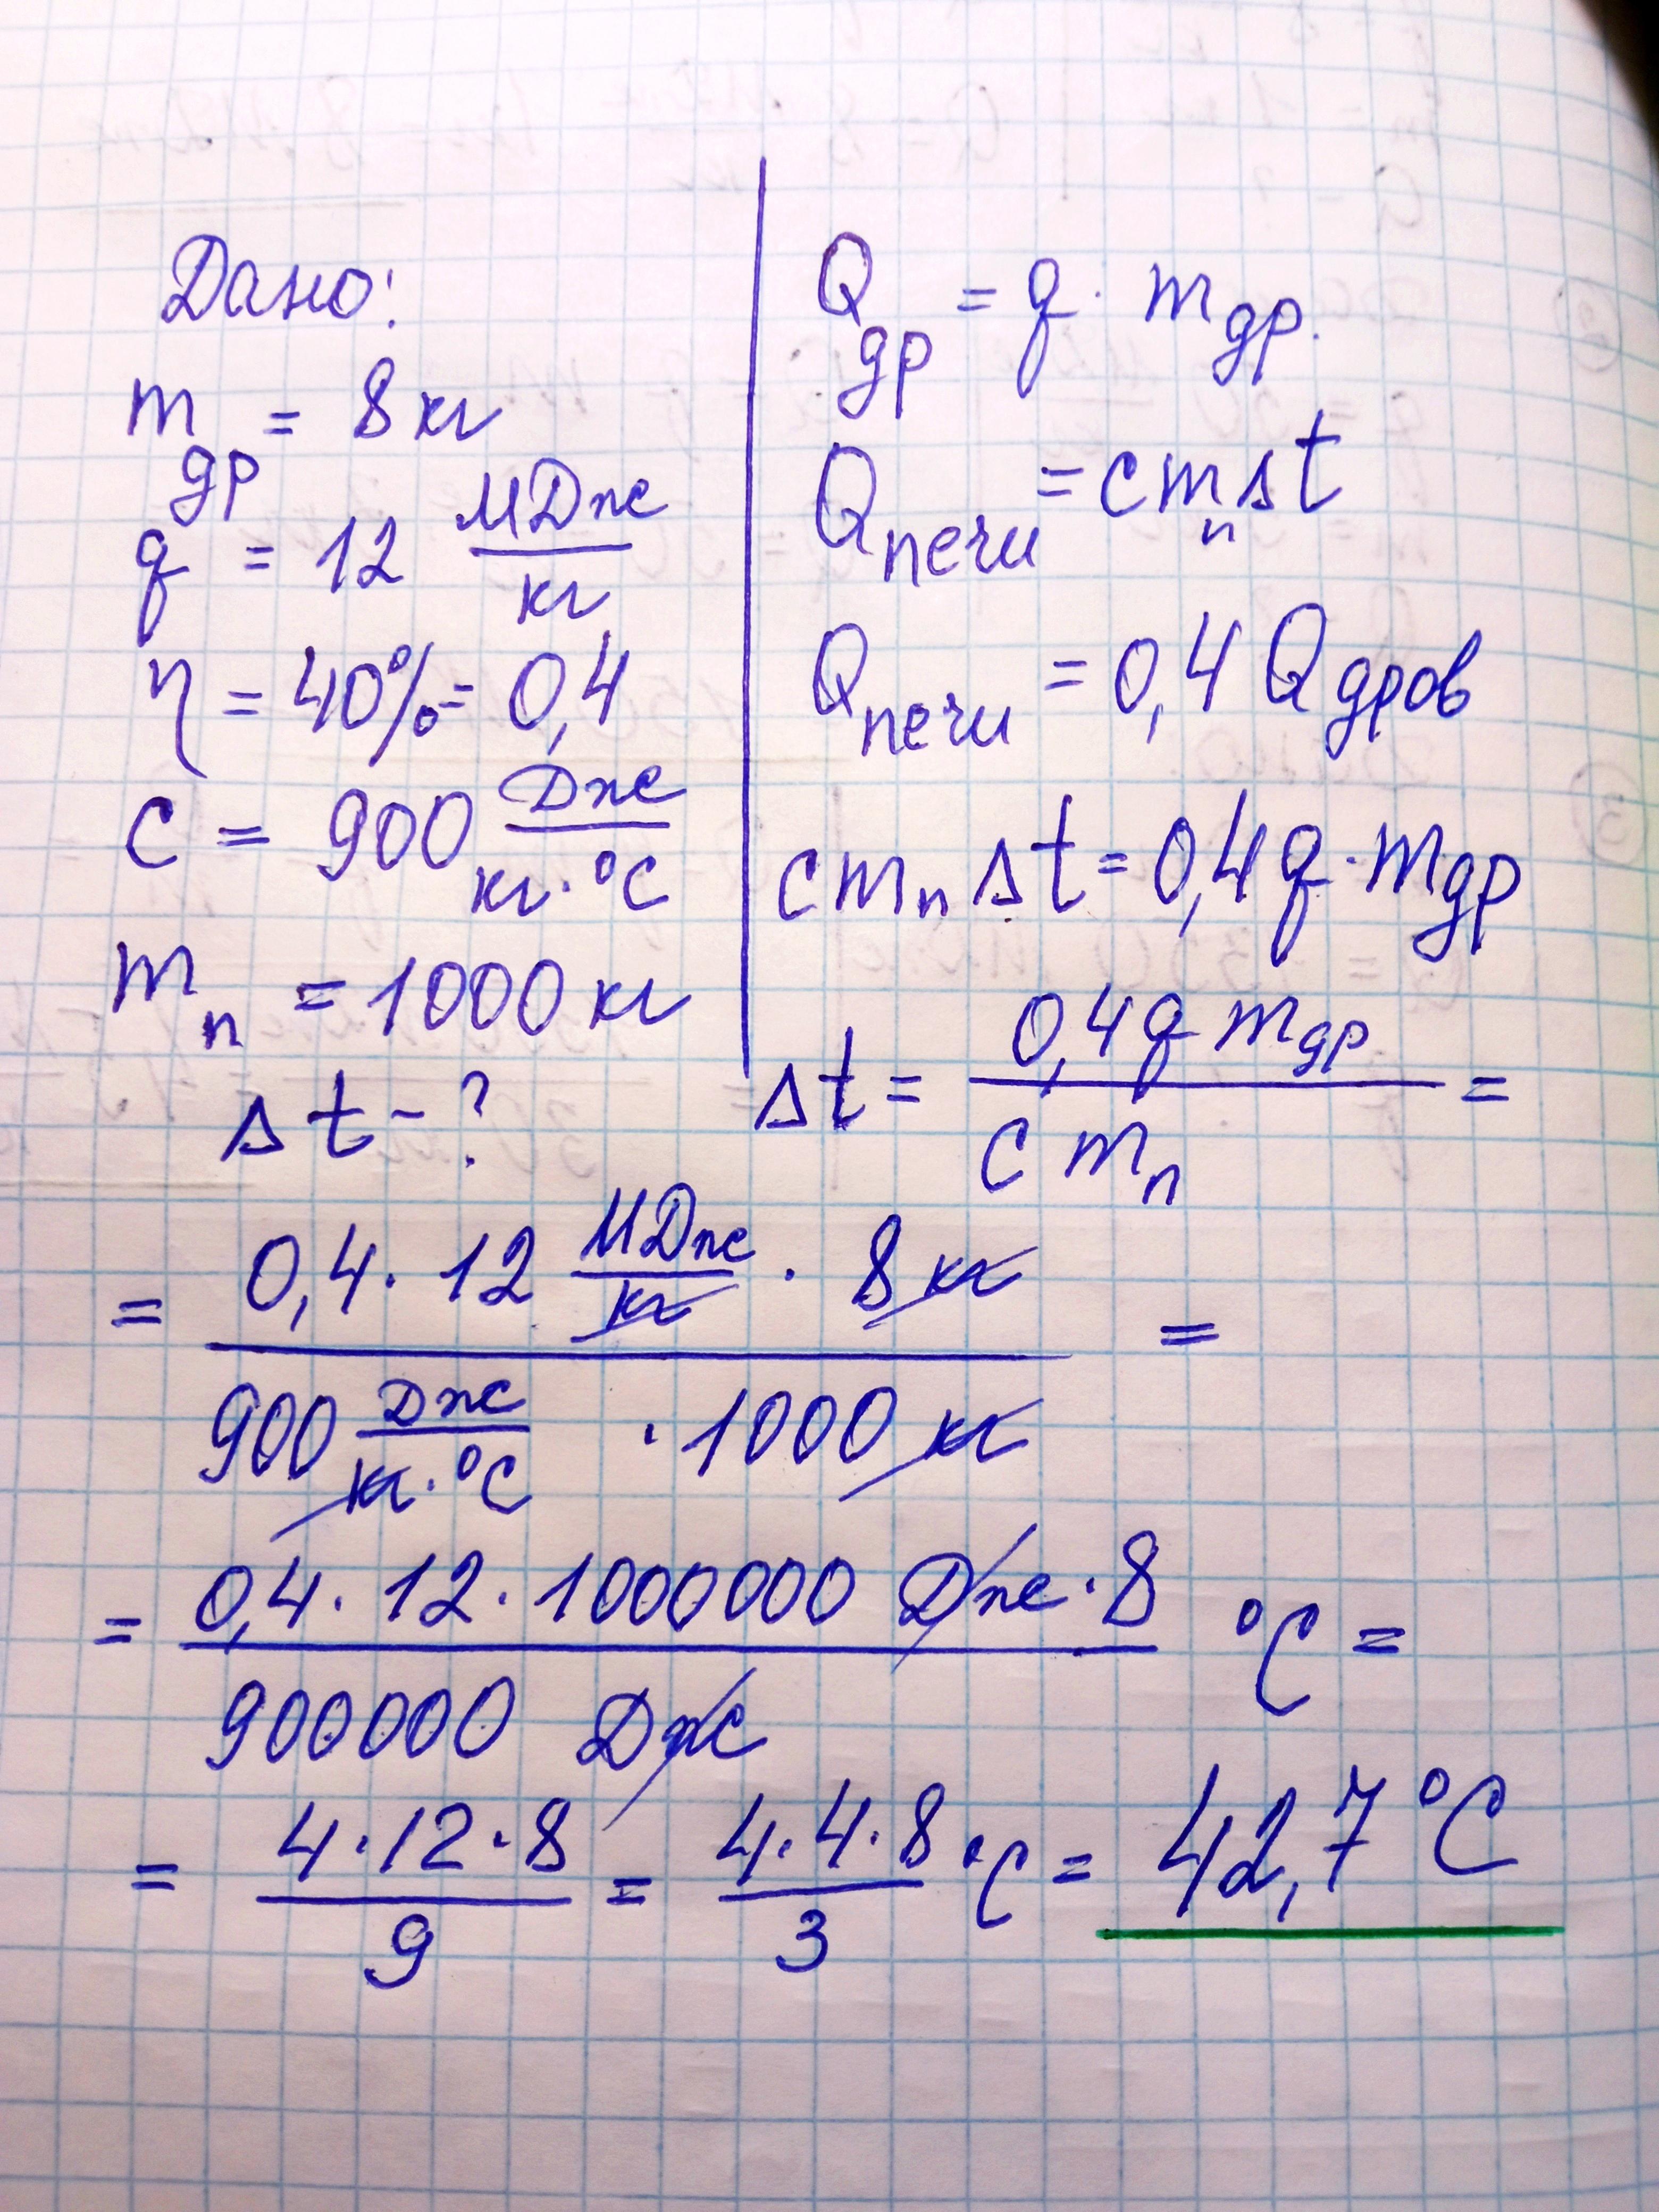 Дано:
m др = 8 кг
q = 12 МДж/кг
η = 40% = 0,4
c = 900 Дж/кг·°C
m п = 1000 кг
Δt - ?
Q др = q · m др.
Q печи = c m п Δt
Q печи = 0,4 Q дров
c m п Δt = 0,4 q · m др
Δt = 0,4 q m др / c m п =
= 0,4 · 12 МДж/кг · 8 кг / 900 Дж/кг·°C · 1000 кг =
= 0,4 · 12 · 1000000 Дж · 8 / 900000 Дж °C =
= 4 · 12 · 8 / 9 = 4 · 4 · 8 / 3 °C = 42,7 °C